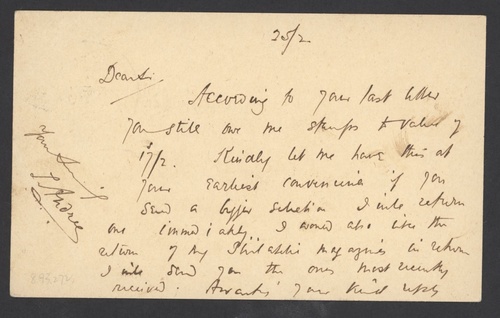 25/2
Dear Sir
According to your last letter
you still owe me stamps to value of
17/2. Kindly let me have this at
your earliest convenience if you
send a bigger selection I will return
one immediately. I would also like the
return of my Philatelic magazines in return
I will send you the ones most recently
received. Awaiting your kind reply
Yours Sincerely